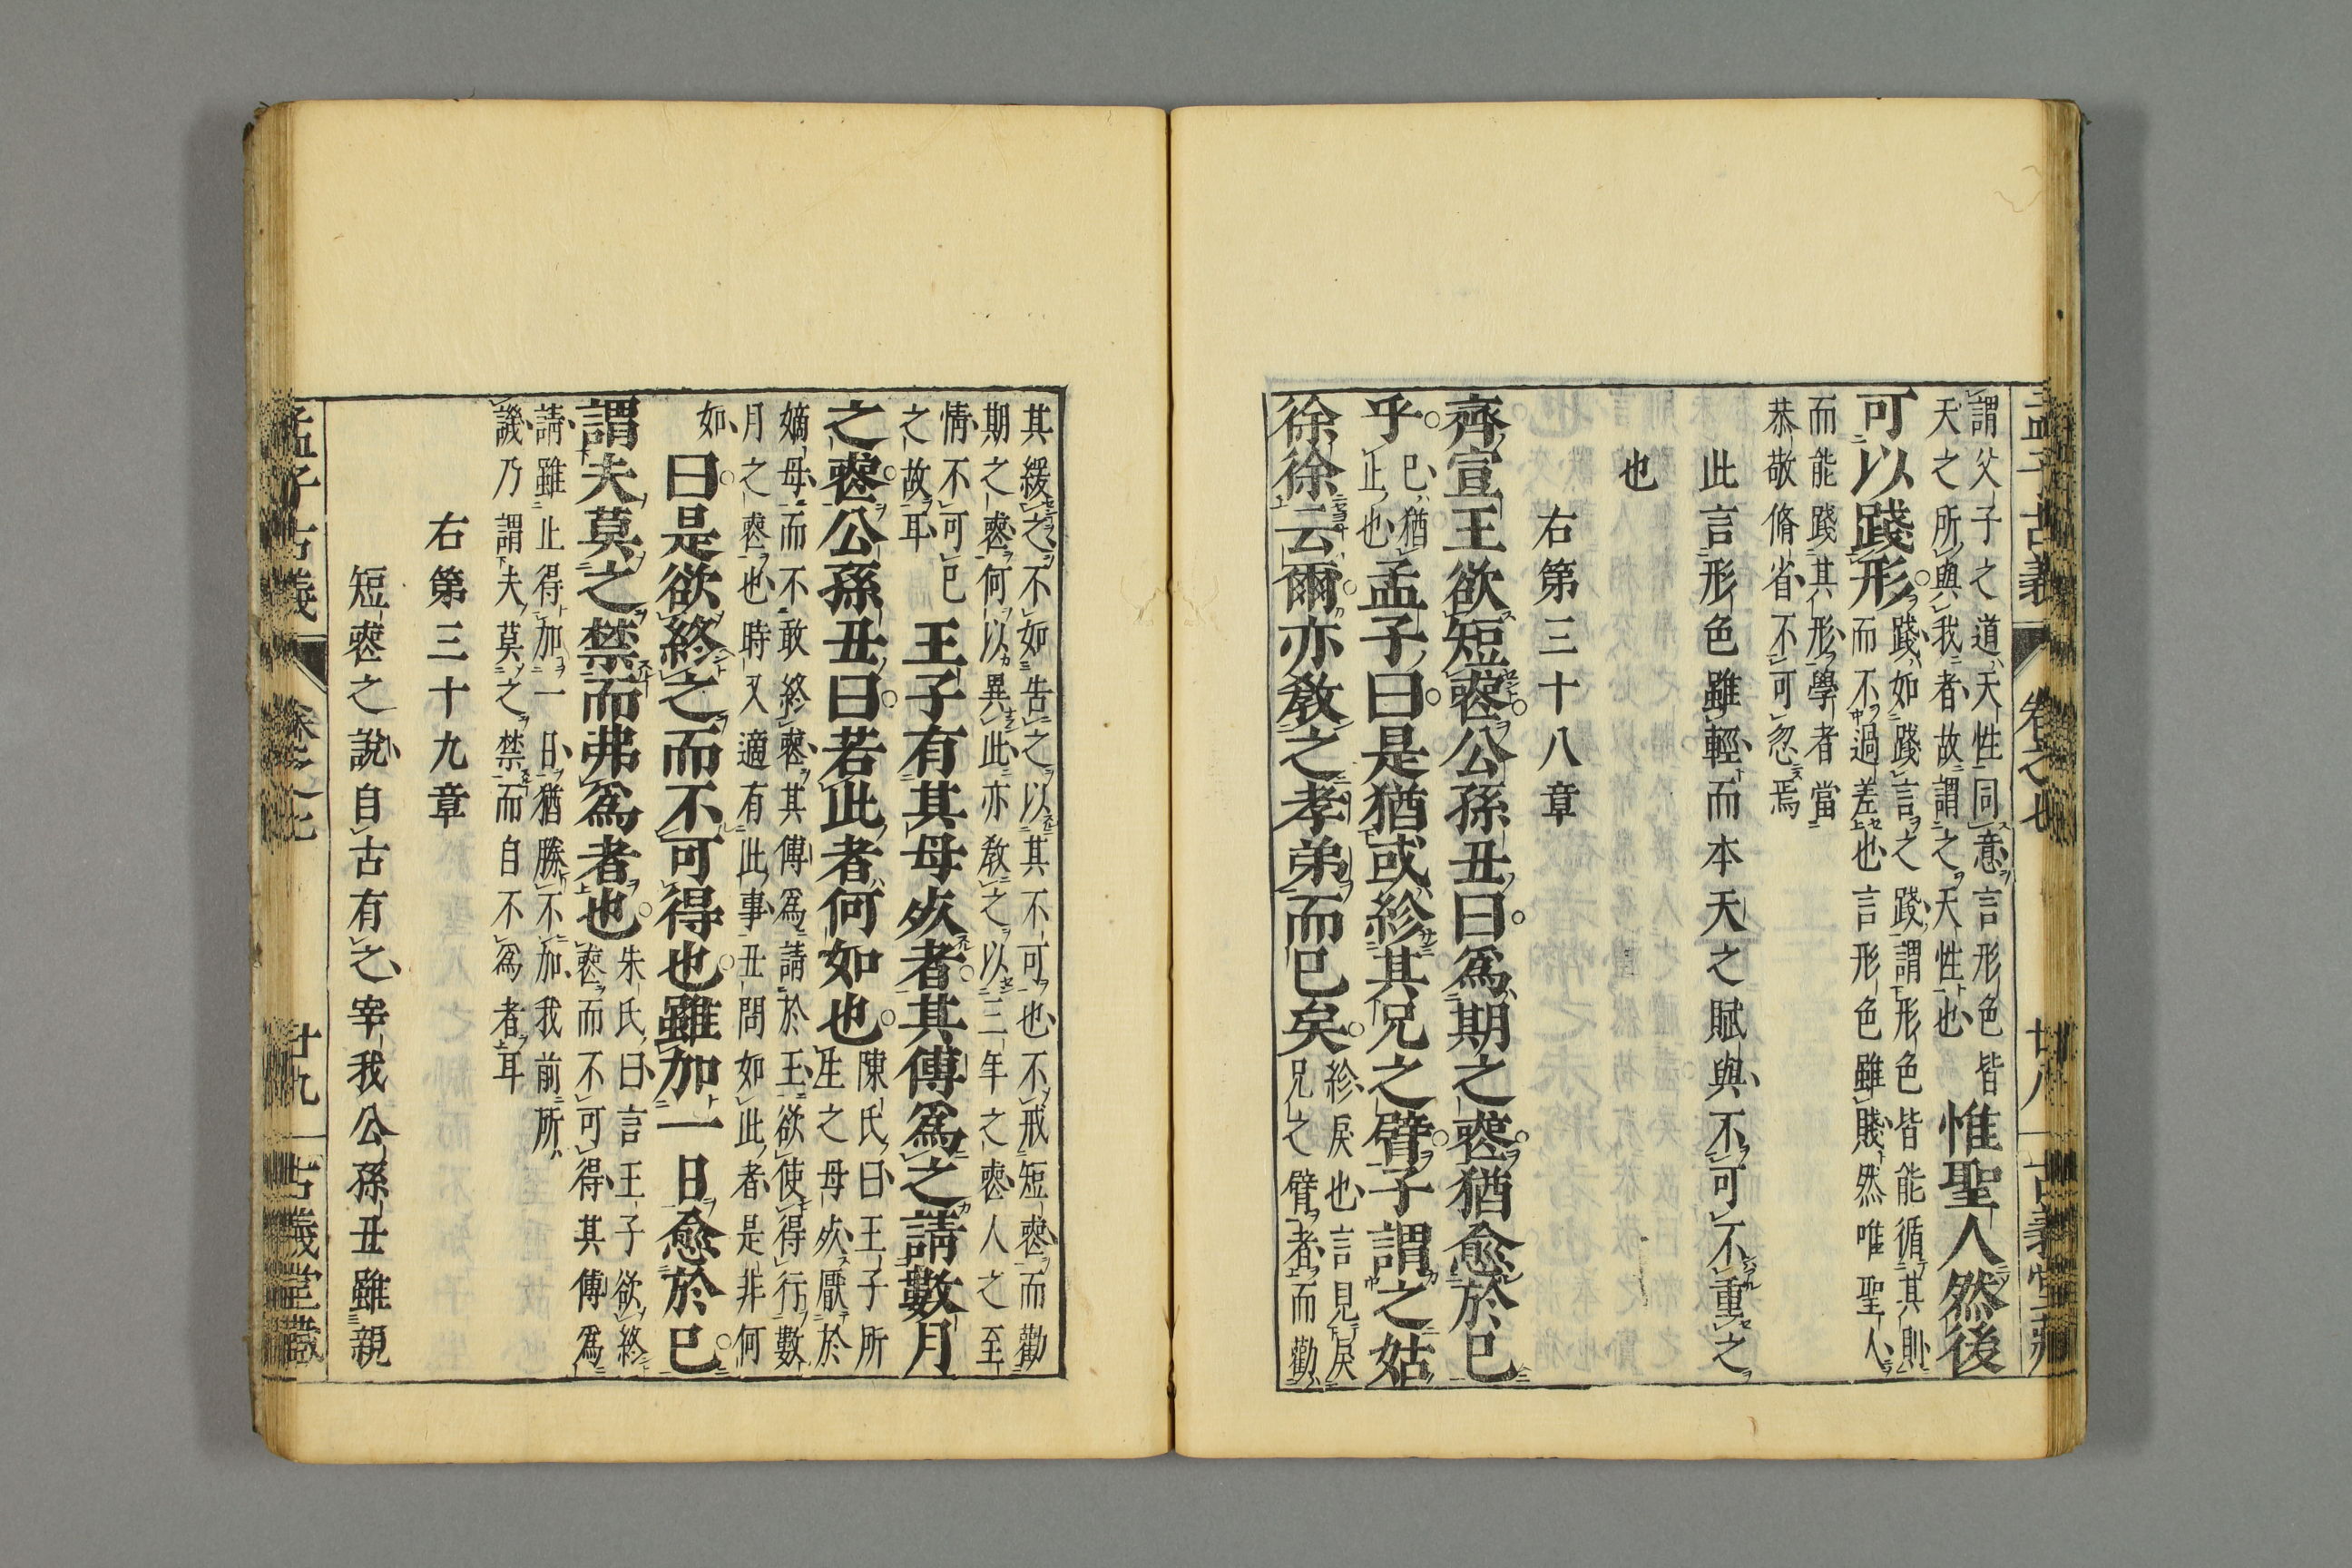 孟子古義 卷之七 廿八 古義堂藏
謂父子之道天性同意言形色皆
天之所與我者故謂之天性也
惟聖人然後
可以踐形
踐如踐言之踐謂形色皆能循其則
而不過差也言形色雖賤然唯聖人
而能踐其形學者當
恭敬脩省不可忽焉
此言形色雖輕而本天之賦與不可不重之
也
右第三十八章
齊宣王欲短喪公孫丑曰爲期之喪猶愈於已
乎
已猶
止也
孟子曰是猶或紾其兄之臂子謂之姑
徐徐云爾亦敎之孝弟而已矣
紾戾也言見戾
兄之臂者而勸
其緩之不如告之以其不可也不戒短喪而勸
期之喪何以異此亦敎之以三年之喪人之至
情不可已
之故耳
王子有其母死者其傅爲之請數月
之喪公孫丑曰若此者何如也
陳氏曰王子所
生之母死厭於
嫡母而不敢終喪其傅爲請於王欲使得行數
月之喪也時又適有此事丑問如此者是非何
如
曰是欲終之而不可得也雖加一日愈於已
謂夫莫之禁而弗爲者也
朱氏曰言王子欲終
喪而不可得其傅爲
請雖止得加一日猶勝不加我前所
譏乃謂夫莫之禁而自不爲者耳
右第三十九章
短喪之說自古有之宰我公孫丑雖親
孟子古義 卷之七 廿九 古義堂藏